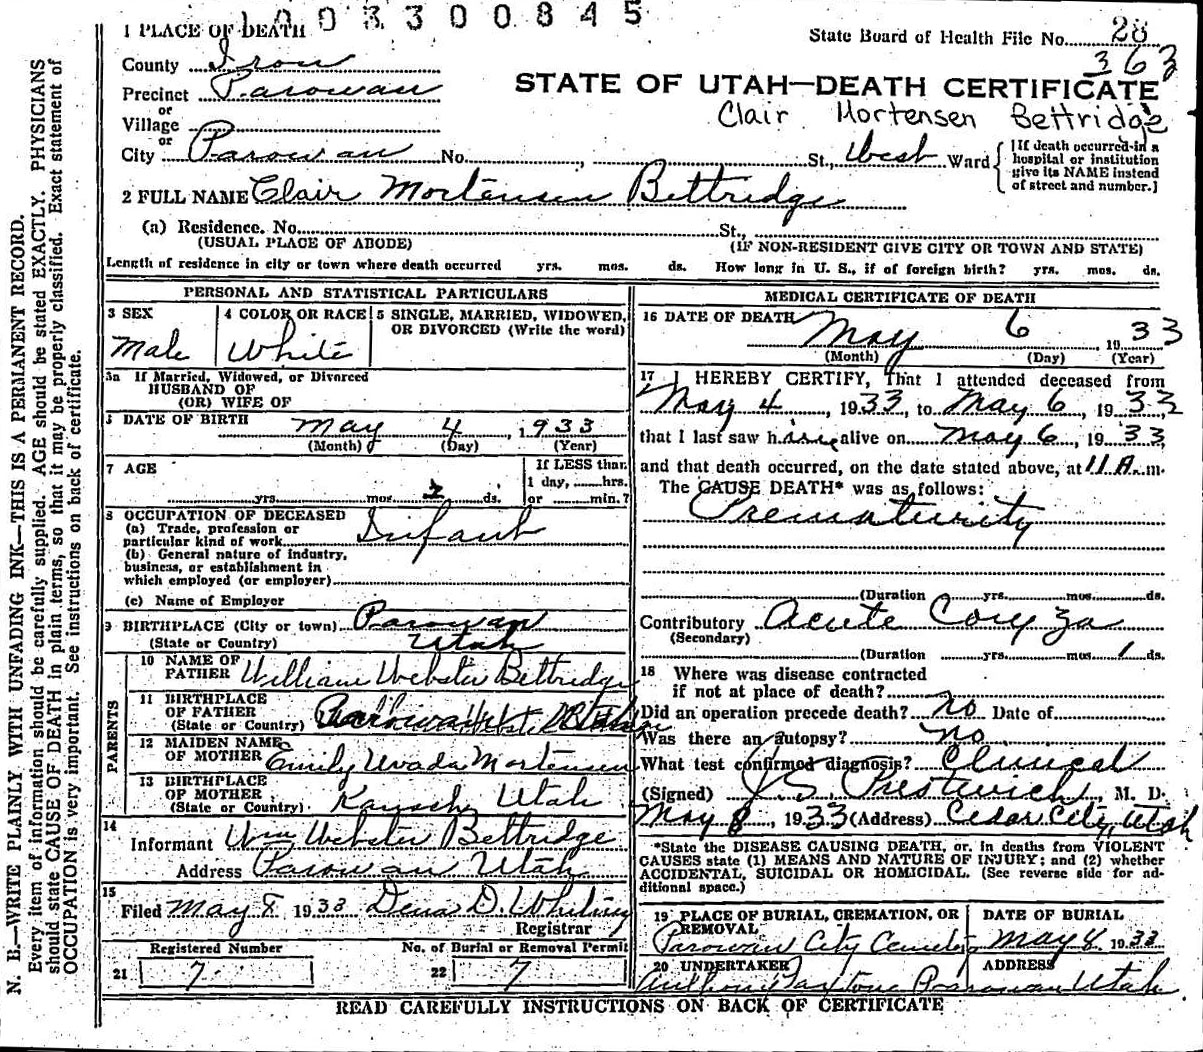 1003300845
1 PLACE OF DEATH
State Board of Health File No. 28
363
County Iron
Precinct Parowan
or
Village
or
City Parowan No. St., West Ward
STATE OF UTAH—DEATH CERTIFICATE
Clair Mortensen Bettridge
[If death occurred in a
hospital or institution
give its NAME instead
of street and number.]
2 FULL NAME Clair Mortensen Bettridge
(a) Residence. No. St.,
(USUAL PLACE OF ABODE) (IF NON-RESIDENT GIVE CITY OR TOWN AND STATE)
Length of residence in city or town where death occurred yrs. mos. ds. How long in U. S., if of foreign birth? yrs. mos. ds.
PERSONAL AND STATISTICAL PARTICULARS
3 SEX
Male
4 COLOR OR RACE
White
5 SINGLE, MARRIED, WIDOWED,
OR DIVORCED (Write the word)
5a If Married, Widowed, or Divorced
HUSBAND OF
(OR) WIFE OF
DATE OF BIRTH May 4, 1933
(Month) (Day) (Year)
7 AGE
yrs. mos. 2 ds.
If LESS than
1 day, hrs.
or min.?
8 OCCUPATION OF DECEASED
(a) Trade, profession or
particular kind of work Infant
(b) General nature of industry,
business, or establishment in
which employed (or employer)
(c) Name of Employer
9 BIRTHPLACE (City or town) Parowan
(State or Country) Utah
PARENTS
10 NAME OF
FATHER William Webster Bettridge
11 BIRTHPLACE
OF FATHER
(State or Country)
12 MAIDEN NAME
OF MOTHER Emily Uvada Mortensen
13 BIRTHPLACE
OF MOTHER
(State or Country) Utah
14
Informant Wm Webster Bettridge
Address Parowan Utah
15
Filed May 8 1933 D. Whitney
Registrar
Registered Number
21 7
No. of Burial or Removal Permit
22 7
MEDICAL CERTIFICATE OF DEATH
16 DATE OF DEATH May 6, 1933
(Month) (Day) (Year)
17 I HEREBY CERTIFY, That I attended deceased from
May 4, 1933, to May 6, 1933
that I last saw h alive on May 6, 1933,
and that death occurred, on the date stated above, at 11 A.m.
The CAUSE DEATH* was as follows:
Prematurity
(Duration yrs. mos. ds.
Contributory Acute Coryza
(Secondary)
(Duration yrs. mos. 1 ds.
18 Where was disease contracted
if not at place of death?
Did an operation precede death? no Date of
Was there an autopsy? no
What test confirmed diagnosis? Clinical
(Signed) J S Prestwich, M. D.
May 8, 1933 (Address) Cedar City, Utah
*State the DISEASE CAUSING DEATH, or, in deaths from VIOLENT
CAUSES state (1) MEANS AND NATURE OF INJURY; and (2) whether
ACCIDENTAL, SUICIDAL OR HOMICIDAL. (See reverse side for ad-
ditional space.)
19 PLACE OF BURIAL, CREMATION, OR
REMOVAL
Parowan City Cemetery
DATE OF BURIAL
May 8, 1933
20 UNDERTAKER
ADDRESS
Parowan Utah
READ CAREFULLY INSTRUCTIONS ON BACK OF CERTIFICATE
N. B.—WRITE PLAINLY WITH UNFADING INK—THIS IS A PERMANENT RECORD.
Every item of information should be carefully supplied. AGE should be stated EXACTLY. PHYSICIANS
should state CAUSE OF DEATH in plain terms, so that it may be properly classified. Exact statement of
OCCUPATION is very important. See instructions on back of certificate.